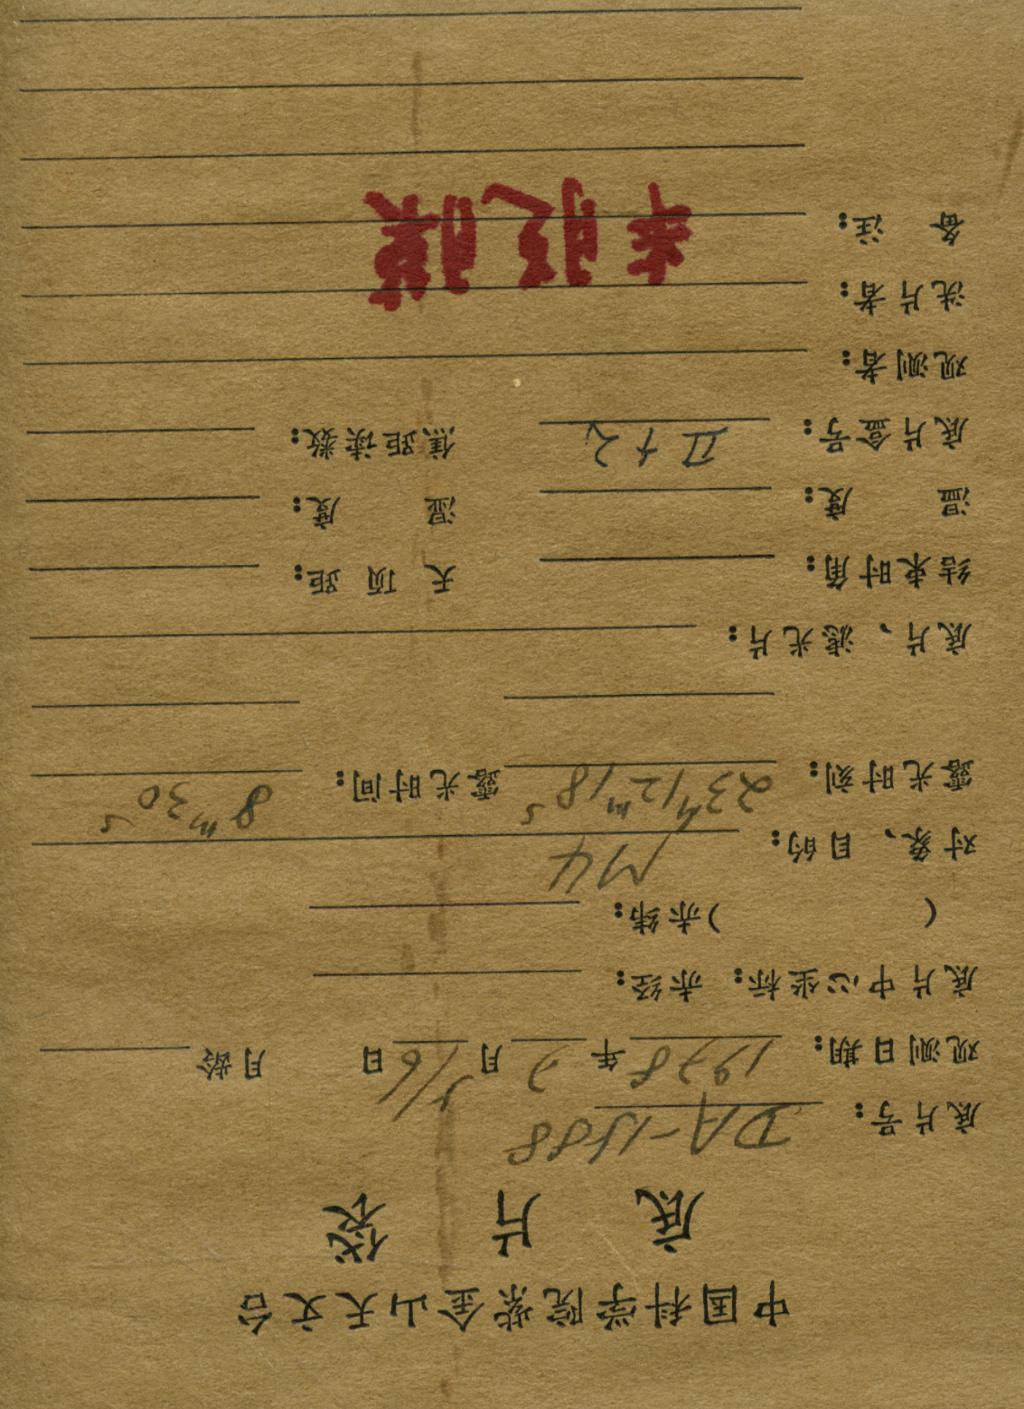 中国科学院紫金山天文台
底 片 袋
底片号: DA-1588
观测日期: 1978 年 2 月 日 月龄
底片中心坐标: 赤经:
( )赤纬:
对象、目的: M4
露光时刻: 23h12m18s 露光时间: 8m30s
底片、滤光片:
结束时角: 天 顶 距:
温 度: 湿 度:
底片盒号: 焦距读数:
观测者:
洗片者:
备 注:
未脱膜